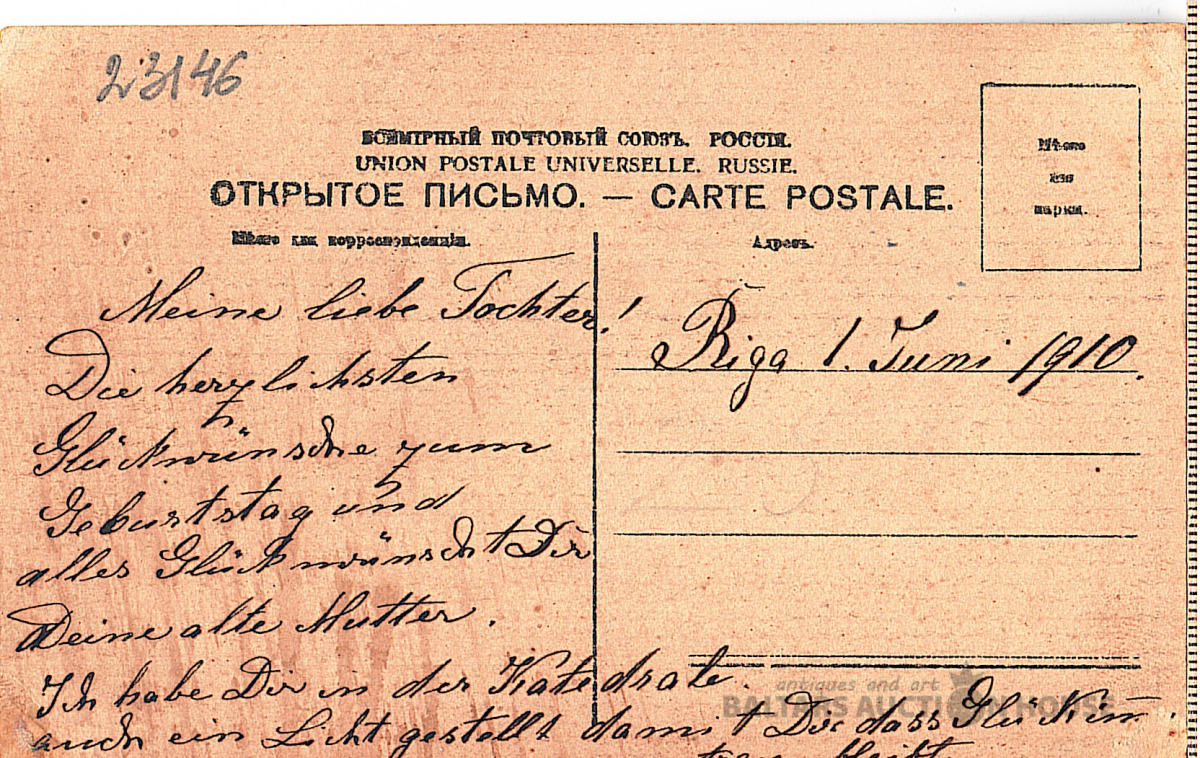 23146
ВСЕМІРНЫЙ ПОЧТОВЫЙ СОЮЗЪ. РОССІЯ.
UNION POSTALE UNIVERSELLE. RUSSIE.
ОТКРЫТОЕ ПИСЬМО. — CARTE POSTALE.
Мѣсто
для
марки.
Мѣсто для корреспонденціи.
Адресъ.
Meine liebe Tochter!
Die herzlichsten
Glückwünsche zum
Geburtstag und
alles Glück wünscht Dir
Deine alte Mutter.
Ich habe Dir in der Katedrale
auch ein Licht gestellt damit Dir dass Glück im
bleibt.
Riga 1. Juni 1910.
antiques and art
BALTIJAS AUCTION HOUSE